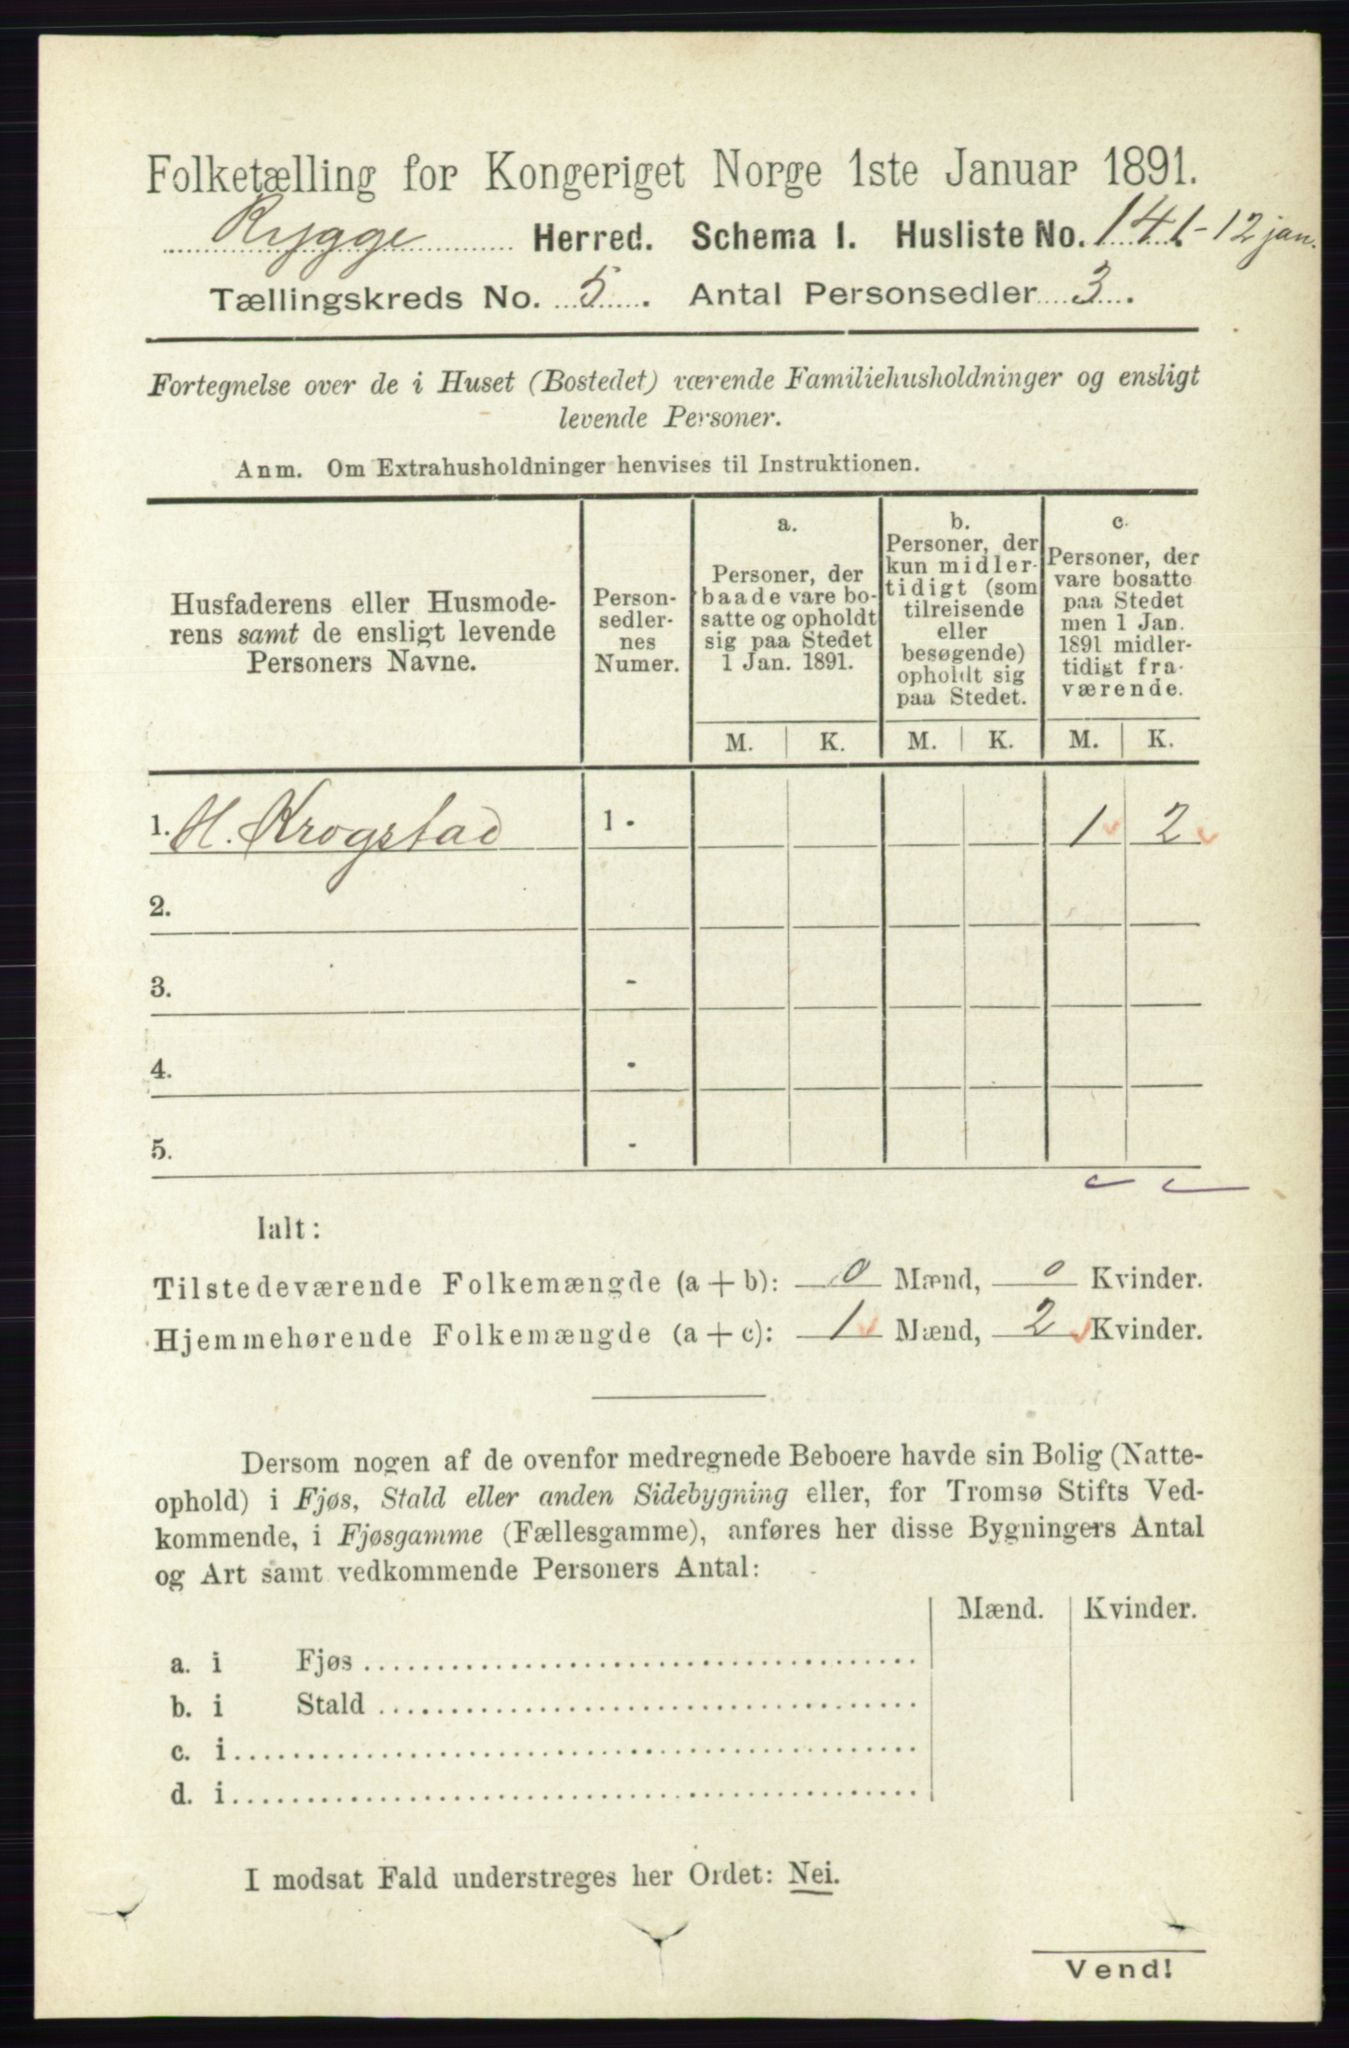 Folketælling for Kongeriget Norge 1ste Januar 1891.
Rygge Herred. Schema I. Husliste No. 141 - 12 jan.
Tællingskreds No. 5. Antal Personsedler 3.
Fortegnelse over de i Huset (Bostedet) værende Familiehusholdninger og ensligt
levende Personer.
Anm. Om Extrahusholdninger henvises til Instruktionen.
Husfaderens eller Husmode-
rens samt de ensligt levende
Personers Navne.
Person-
sedler-
nes
Numer.
a.
Personer, der
baade vare bo-
satte og opholdt
sig paa Stedet
1 Jan. 1891.
b.
Personer, der
kun midler-
tidigt (som
tilreisende
eller
besøgende)
opholdt sig
paa Stedet.
c.
Personer, der
vare bosatte
paa Stedet
men 1 Jan.
1891 midler-
tidigt fra-
værende.
M. K. M. K. M. K.
1. H. Krogstad 1 - 1 2
2.
3. -
4. -
5. -
Ialt:
Tilstedeværende Folkemængde (a + b): 0 Mænd, 0 Kvinder.
Hjemmehørende Folkemængde (a + c): 1 Mænd, 2 Kvinder.
Dersom nogen af de ovenfor medregnede Beboere havde sin Bolig (Natte-
ophold) i Fjøs, Stald eller anden Sidebygning eller, for Tromsø Stifts Ved-
kommende, i Fjøsgamme (Fællesgamme), anføres her disse Bygningers Antal
og Art samt vedkommende Personers Antal:
Mænd. Kvinder.
a. i Fjøs
b. i Stald
c. i
d. i
I modsat Fald understreges her Ordet: Nei.
Vend!